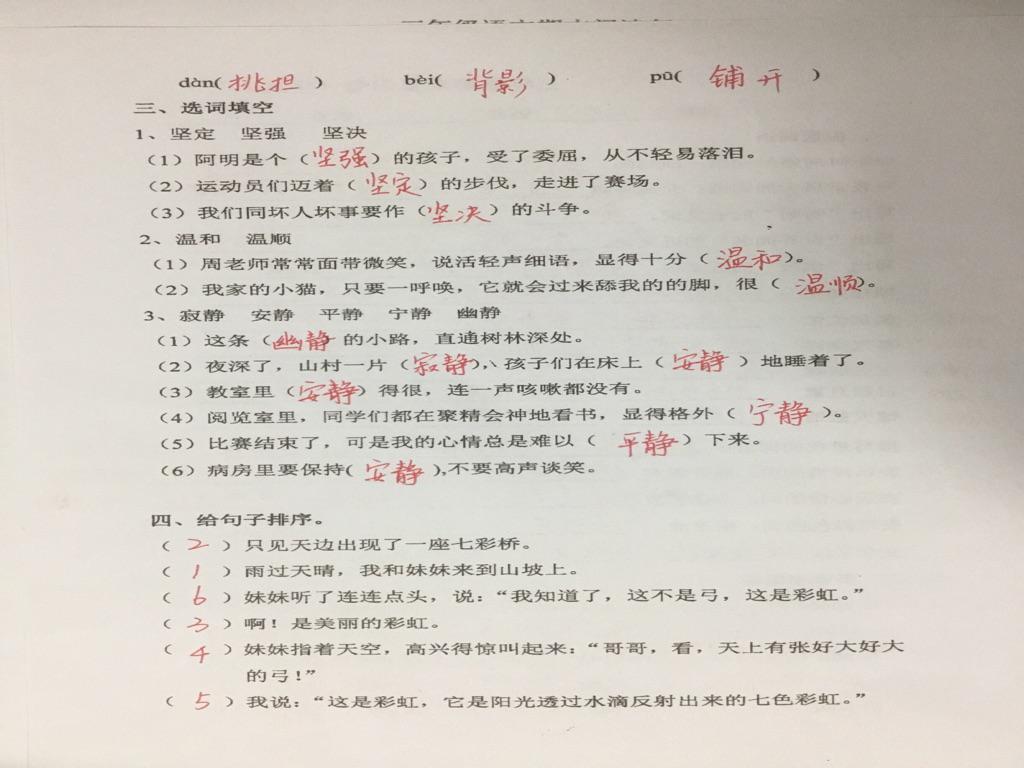 dàn( 挑担 ) bèi( 背影 ) pū( 铺开 )
三、选词填空
1、坚定 坚强 坚决
（1）阿明是个（坚强）的孩子，受了委屈，从不轻易落泪。
（2）运动员们迈着（坚定）的步伐，走进了赛场。
（3）我们同坏人坏事要作（坚决）的斗争。
2、温和 温顺
（1）周老师常常面带微笑，说活轻声细语，显得十分（温和）。
（2）我家的小猫，只要一呼唤，它就会过来舔我的的脚，很（温顺）。
3、寂静 安静 平静 宁静 幽静
（1）这条（幽静 的小路，直通树林深处。
（2）夜深了，山村一片（寂静）、孩子们在床上（安静）地睡着了。
（3）教室里（安静）得很，连一声咳嗽都没有。
（4）阅览室里，同学们都在聚精会神地看书，显得格外（宁静）。
（5）比赛结束了，可是我的心情总是难以（平静）下来。
（6）病房里要保持(安静),不要高声谈笑。
四、给句子排序。
（2）只见天边出现了一座七彩桥。
（1）雨过天晴，我和妹妹来到山坡上。
（6）妹妹听了连连点头，说：“我知道了，这不是弓，这是彩虹。”
（3）啊！是美丽的彩虹。
（4）妹妹指着天空，高兴得惊叫起来：“哥哥，看，天上有张好大好大
的弓！”
（5）我说：“这是彩虹，它是阳光透过水滴反射出来的七色彩虹。”